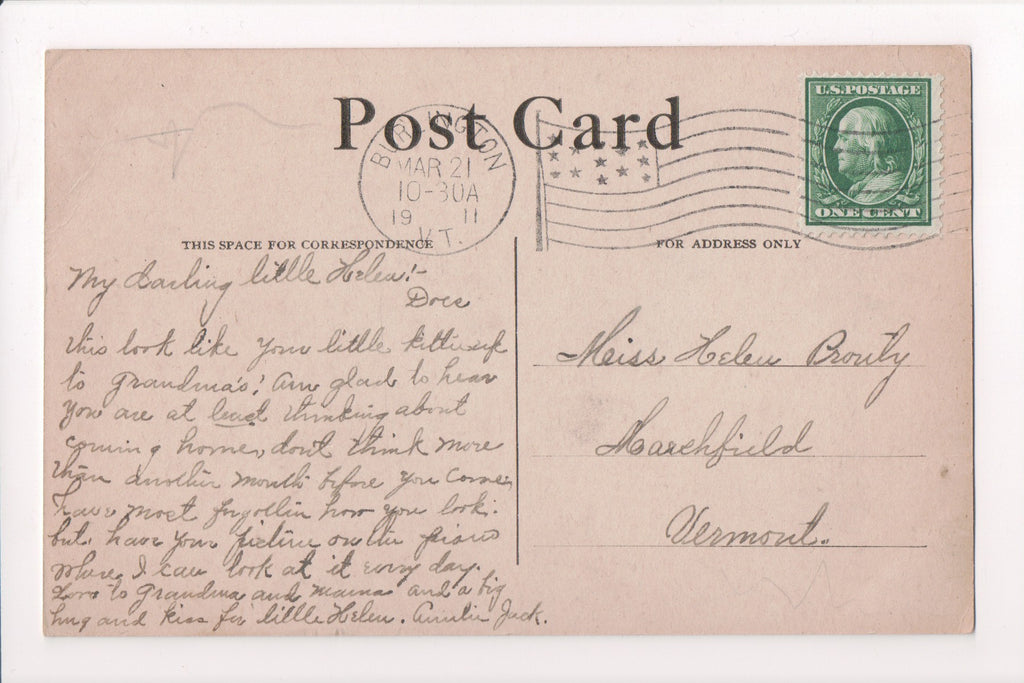 Post Card
U.S. POSTAGE
ONE CENT
BURLINGTON
MAR 21
10-30A
19 11
VT.
THIS SPACE FOR CORRESPONDENCE
FOR ADDRESS ONLY
My darling little Helen!-
Does
this look like your little kittie up
to Grandma's! Am glad to hear
you are at least thinking about
coming home, dont think more
than another month before you come,
have most forgotten how you look.
but have your picture on the piano
where I can look at it every day.
Love to Grandma and mama and a big
hug and kiss for little Helen. Auntie Jack.
Miss Helen Prouty
Marchfield
Vermont.